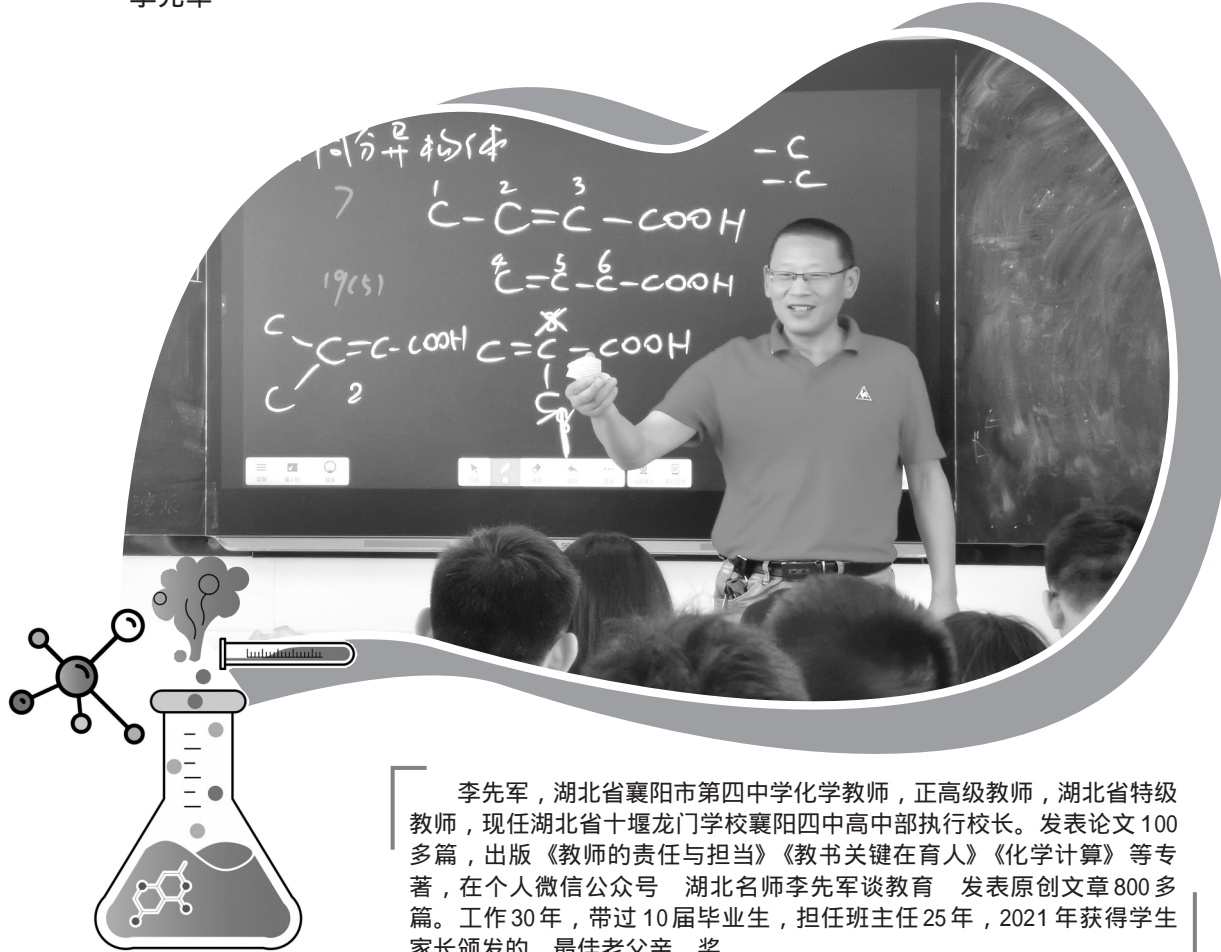 李先军
同分异构体
- C
- C
7
1 2 3
C-C=C-COOH
4 5 6
C=C-C-COOH
19(5)
C
C=C-COOH
C
2
C=C-COOH
C
李先军，湖北省襄阳市第四中学化学教师，正高级教师，湖北省特级
教师，现任湖北省十堰龙门学校襄阳四中高中部执行校长。发表论文100
多篇，出版《教师的责任与担当》《教书关键在育人》《化学计算》等专
著，在个人微信公众号 湖北名师李先军谈教育 发表原创文章800多
篇。工作30年，带过10届毕业生，担任班主任25年，2021年获得学生
家长颁发的 最佳老父亲 奖